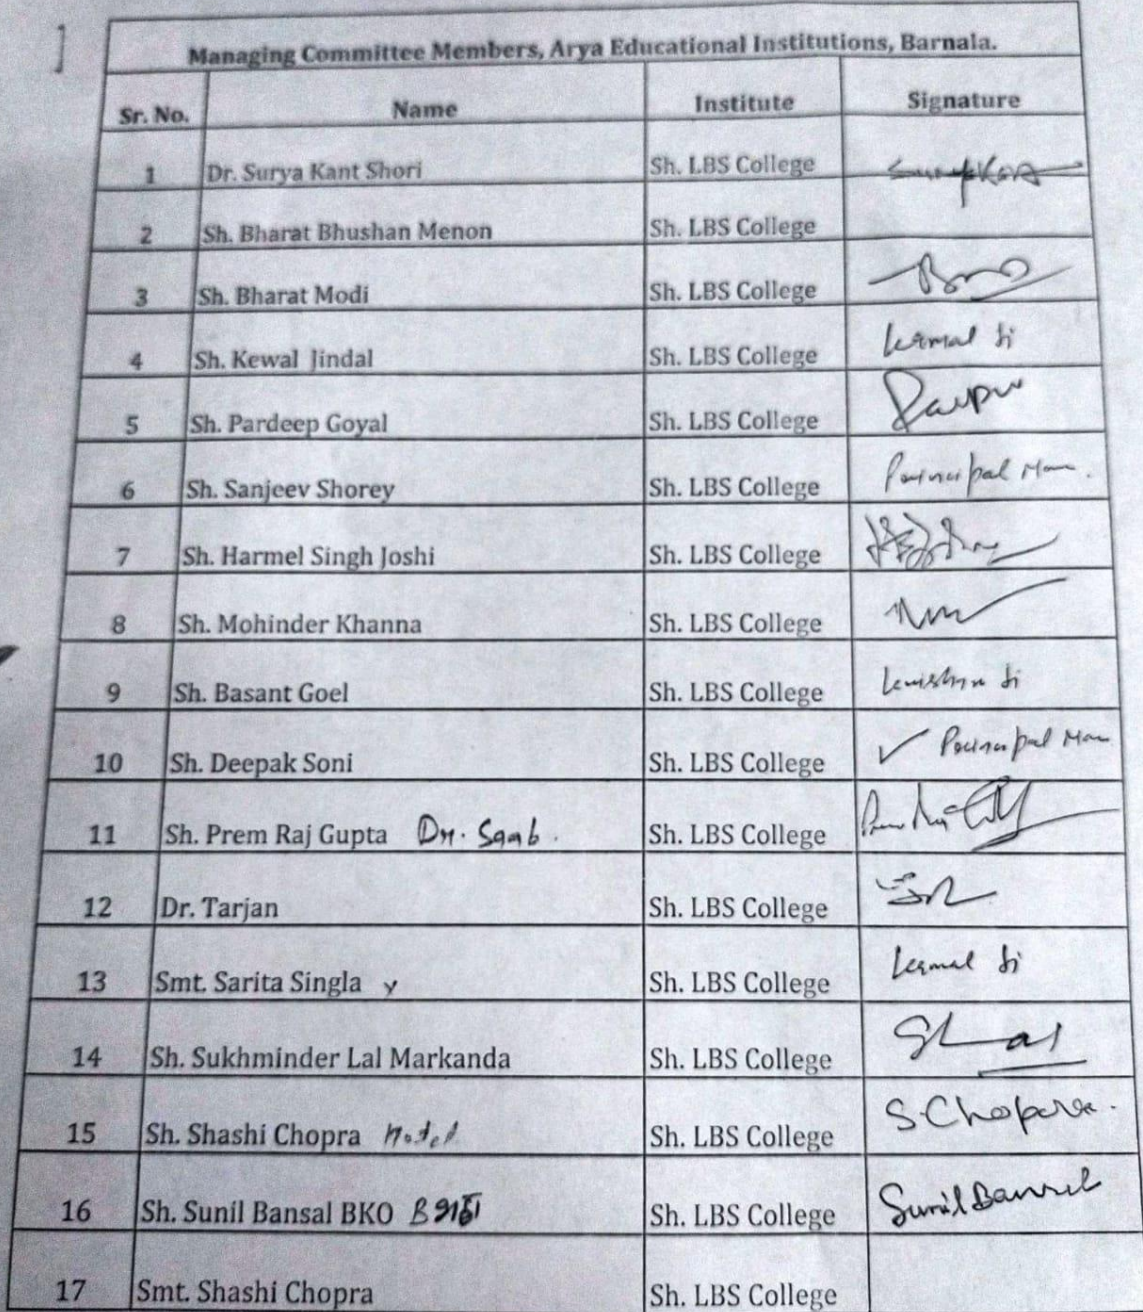 Managing Committee Members, Arya Educational Institutions, Barnala.
Sr. No. Name Institute Signature
1 Dr. Surya Kant Shori Sh. LBS College
2 Sh. Bharat Bhushan Menon Sh. LBS College
3 Sh. Bharat Modi Sh. LBS College
4 Sh. Kewal Jindal Sh. LBS College
5 Sh. Pardeep Goyal Sh. LBS College
6 Sh. Sanjeev Shorey Sh. LBS College Principal Mam.
7 Sh. Harmel Singh Joshi Sh. LBS College
8 Sh. Mohinder Khanna Sh. LBS College
9 Sh. Basant Goel Sh. LBS College
10 Sh. Deepak Soni Sh. LBS College ✓ Principal Mam
11 Sh. Prem Raj Gupta Dr. Saab. Sh. LBS College
12 Dr. Tarjan Sh. LBS College
13 Smt. Sarita Singla Sh. LBS College
14 Sh. Sukhminder Lal Markanda Sh. LBS College
15 Sh. Shashi Chopra Sh. LBS College S.Chopra.
16 Sh. Sunil Bansal BKO Sh. LBS College Sunil Bansal
17 Smt. Shashi Chopra Sh. LBS College